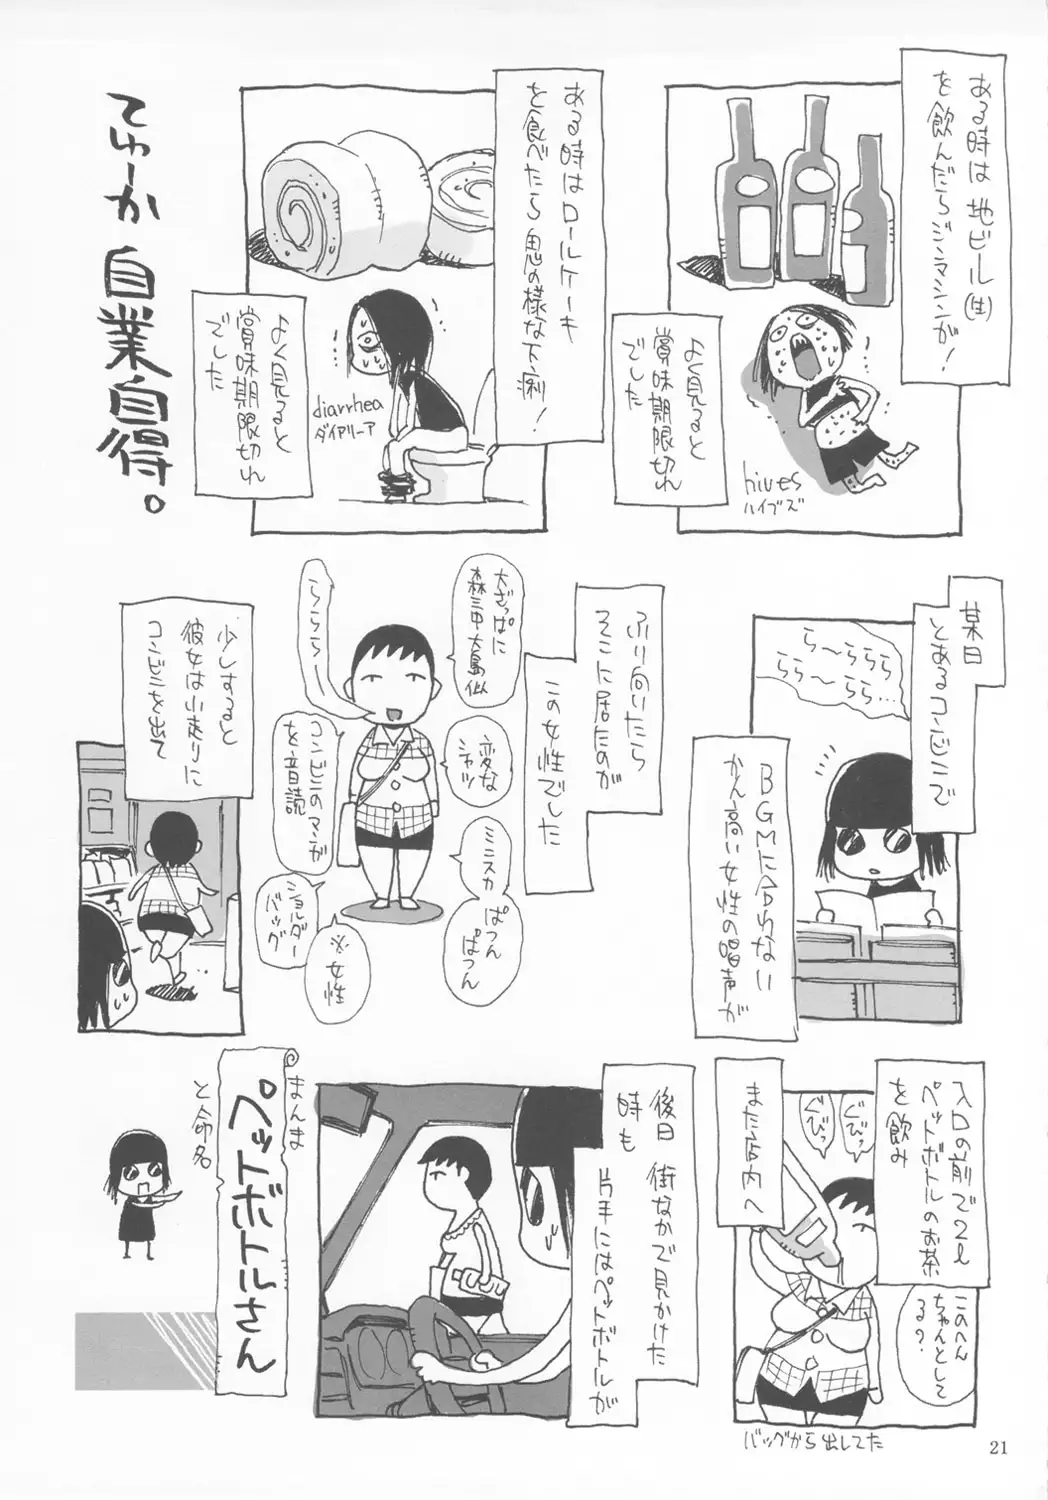 ある時は地ビール(生)
を飲んだらジンマシンが!
よく見ると
賞味期限切れ
でした
hives
ハイブズ
ある時はロールケーキ
を食べたら鬼の様な下痢!
よく見ると
賞味期限切れ
でした
diarrhea
ダイアリーア
てゆーか自業自得。
某日
とあるコンビニで
ら〜らららら
らら〜らら…
BGMに合わない
かん高い女性の唱声が
ふり向いたら
そこに居たのが
この女性でした
大ざっぱに
森三中大島似
ららららら
変な
シャツ
コンビニのマンガ
を音読
ミニスカ
ぱっつん
ぱっつん
ショルダー
バッグ
※女性
少しすると
彼女は小走りに
コンビニを出て
入口の前で2ℓ
ペットボトルのお茶
を飲み
ぐびっ
ぐびっ
このへん
ちゃんとして
る?
バッグから出してた
また店内へ
後日 街なかで見かけた
時も 片手にはペットボトルが
まんま
ペットボトルさん
と命名
21